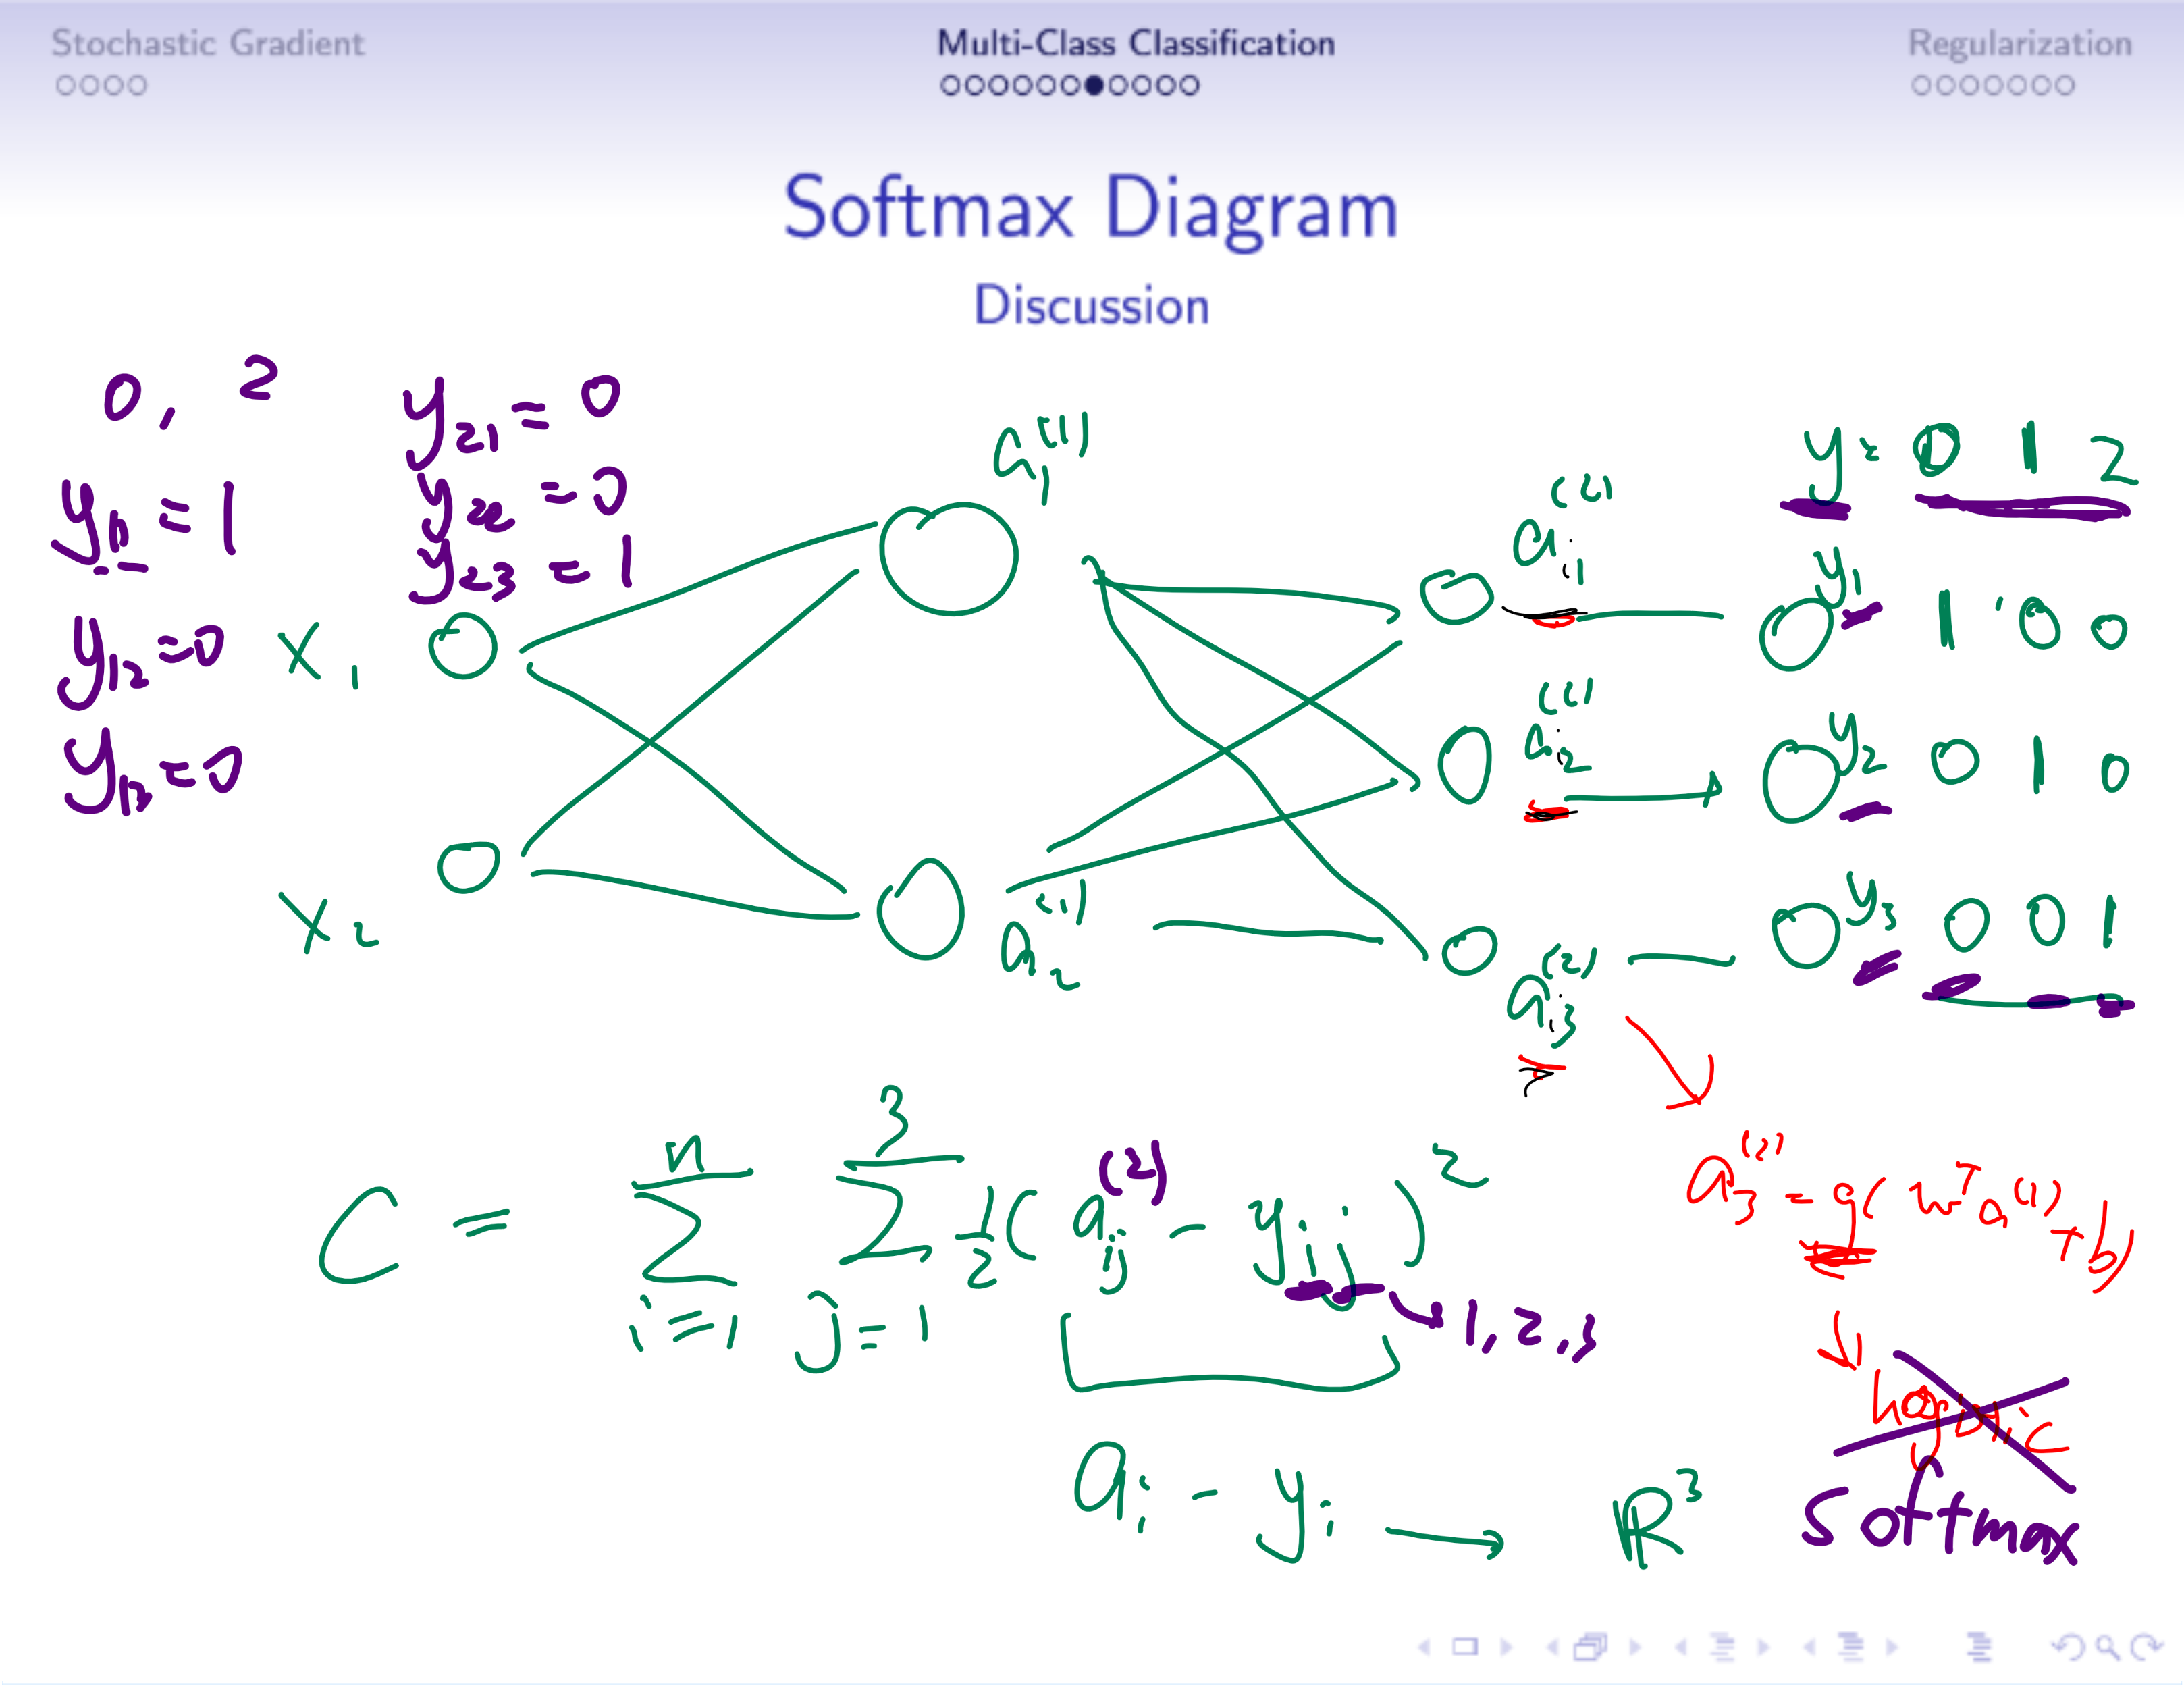 Stochastic Gradient
Multi-Class Classification
Regularization
Softmax Diagram
Discussion
0, 2
y₁₁ = 1
y₁₂ = 0
y₁₃ = 0
y₂₁ = 0
y₂₂ = 0
y₂₃ = 1
x₁
x₂
a₁⁽¹⁾
a₂⁽¹⁾
aᵢ₁⁽²⁾
aᵢ₂⁽²⁾
aᵢ₃⁽²⁾
y = 0 1 2
y₁ 1 0 0
y₂ 0 1 0
y₃ 0 0 1
C = ∑ᵢ₌₁ⁿ ∑ⱼ₌₁³ ½ (aᵢⱼ⁽²⁾ − yᵢⱼ)²
1, 2, 3
aᵢ − yᵢ → ℝ³
a₃⁽²⁾ = g(wᵀa⁽¹⁾ + b)
Logistic
Softmax